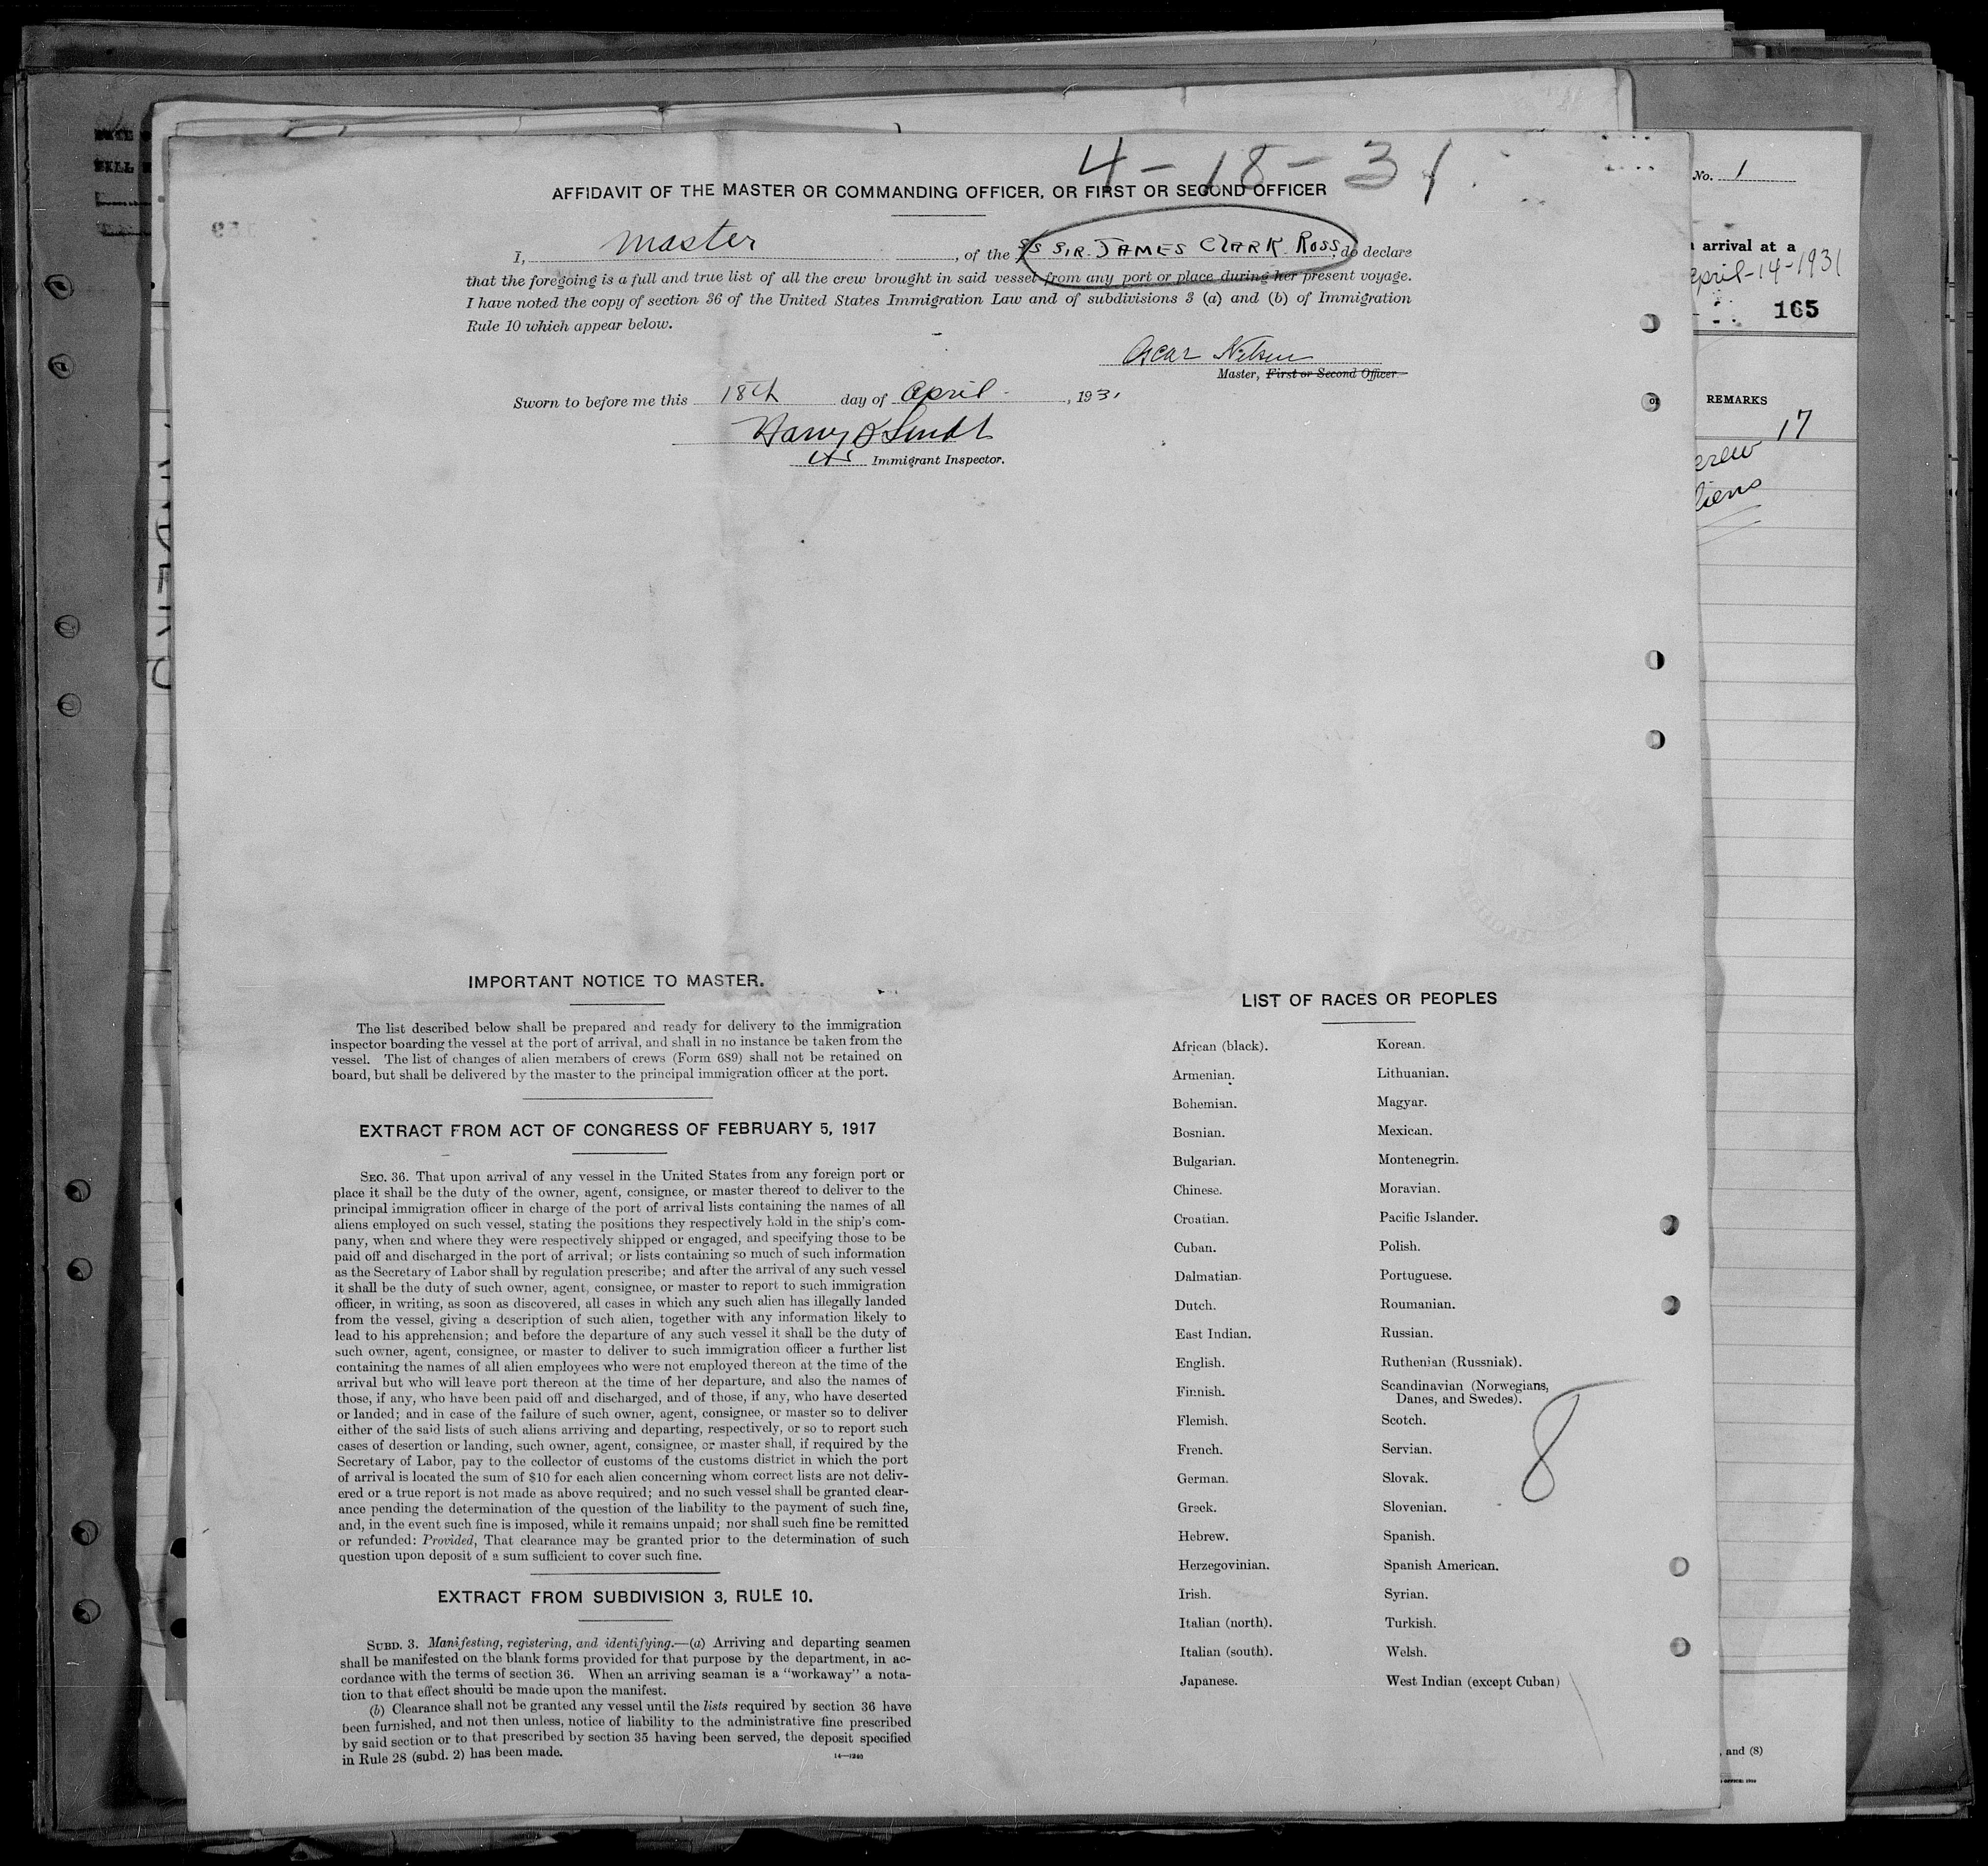 4-18-31
AFFIDAVIT OF THE MASTER OR COMMANDING OFFICER, OR FIRST OR SECOND OFFICER
I, Master, of the S/S SIR JAMES CLARK ROSS, do declare
that the foregoing is a full and true list of all the crew brought in said vessel from any port or place during her present voyage.
I have noted the copy of section 36 of the United States Immigration Law and of subdivisions 3 (a) and (b) of Immigration
Rule 10 which appear below.
Oscar Nilsen
Master, First or Second Officer.
Sworn to before me this 18th day of April, 1931
Harry
Immigrant Inspector.
IMPORTANT NOTICE TO MASTER.
The list described below shall be prepared and ready for delivery to the immigration
inspector boarding the vessel at the port of arrival, and shall in no instance be taken from the
vessel. The list of changes of alien members of crews (Form 689) shall not be retained on
board, but shall be delivered by the master to the principal immigration officer at the port.
EXTRACT FROM ACT OF CONGRESS OF FEBRUARY 5, 1917
SEC. 36. That upon arrival of any vessel in the United States from any foreign port or
place it shall be the duty of the owner, agent, consignee, or master thereof to deliver to the
principal immigration officer in charge of the port of arrival lists containing the names of all
aliens employed on such vessel, stating the positions they respectively hold in the ship's com-
pany, when and where they were respectively shipped or engaged, and specifying those to be
paid off and discharged in the port of arrival; or lists containing so much of such information
as the Secretary of Labor shall by regulation prescribe; and after the arrival of any such vessel
it shall be the duty of such owner, agent, consignee, or master to report to such immigration
officer, in writing, as soon as discovered, all cases in which any such alien has illegally landed
from the vessel, giving a description of such alien, together with any information likely to
lead to his apprehension; and before the departure of any such vessel it shall be the duty of
such owner, agent, consignee, or master to deliver to such immigration officer a further list
containing the names of all alien employees who were not employed thereon at the time of the
arrival but who will leave port thereon at the time of her departure, and also the names of
those, if any, who have been paid off and discharged, and of those, if any, who have deserted
or landed; and in case of the failure of such owner, agent, consignee, or master so to deliver
either of the said lists of such aliens arriving and departing, respectively, or so to report such
cases of desertion or landing, such owner, agent, consignee, or master shall, if required by the
Secretary of Labor, pay to the collector of customs of the customs district in which the port
of arrival is located the sum of $10 for each alien concerning whom correct lists are not deliv-
ered or a true report is not made as above required; and no such vessel shall be granted clear-
ance pending the determination of the question of the liability to the payment of such fine,
and, in the event such fine is imposed, while it remains unpaid; nor shall such fine be remitted
or refunded: Provided, That clearance may be granted prior to the determination of such
question upon deposit of a sum sufficient to cover such fine.
EXTRACT FROM SUBDIVISION 3, RULE 10.
SUBD. 3. Manifesting, registering, and identifying.—(a) Arriving and departing seamen
shall be manifested on the blank forms provided for that purpose by the department, in ac-
cordance with the terms of section 36. When an arriving seaman is a "workaway" a nota-
tion to that effect should be made upon the manifest.
(b) Clearance shall not be granted any vessel until the lists required by section 36 have
been furnished, and not then unless, notice of liability to the administrative fine prescribed
by said section or to that prescribed by section 35 having been served, the deposit specified
in Rule 28 (subd. 2) has been made.
14—1240
LIST OF RACES OR PEOPLES
African (black).
Armenian.
Bohemian.
Bosnian.
Bulgarian.
Chinese.
Croatian.
Cuban.
Dalmatian.
Dutch.
East Indian.
English.
Finnish.
Flemish.
French.
German.
Greek.
Hebrew.
Herzegovinian.
Irish.
Italian (north).
Italian (south).
Japanese.
Korean.
Lithuanian.
Magyar.
Mexican.
Montenegrin.
Moravian.
Pacific Islander.
Polish.
Portuguese.
Roumanian.
Russian.
Ruthenian (Russniak).
Scandinavian (Norwegians,
Danes, and Swedes).
Scotch.
Servian.
Slovak.
Slovenian.
Spanish.
Spanish American.
Syrian.
Turkish.
Welsh.
West Indian (except Cuban)
8
No. 1
arrival at a
April-14-1931
165
REMARKS
17
crew
liens
, and (8)